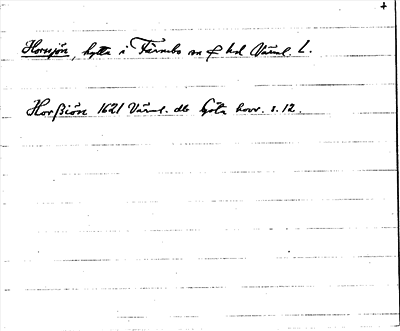 Hornsjön, hytta i Färnebo sn & hd Värml. L.
Horßiön 1621 Värml. db Göta hovr. s. 12.